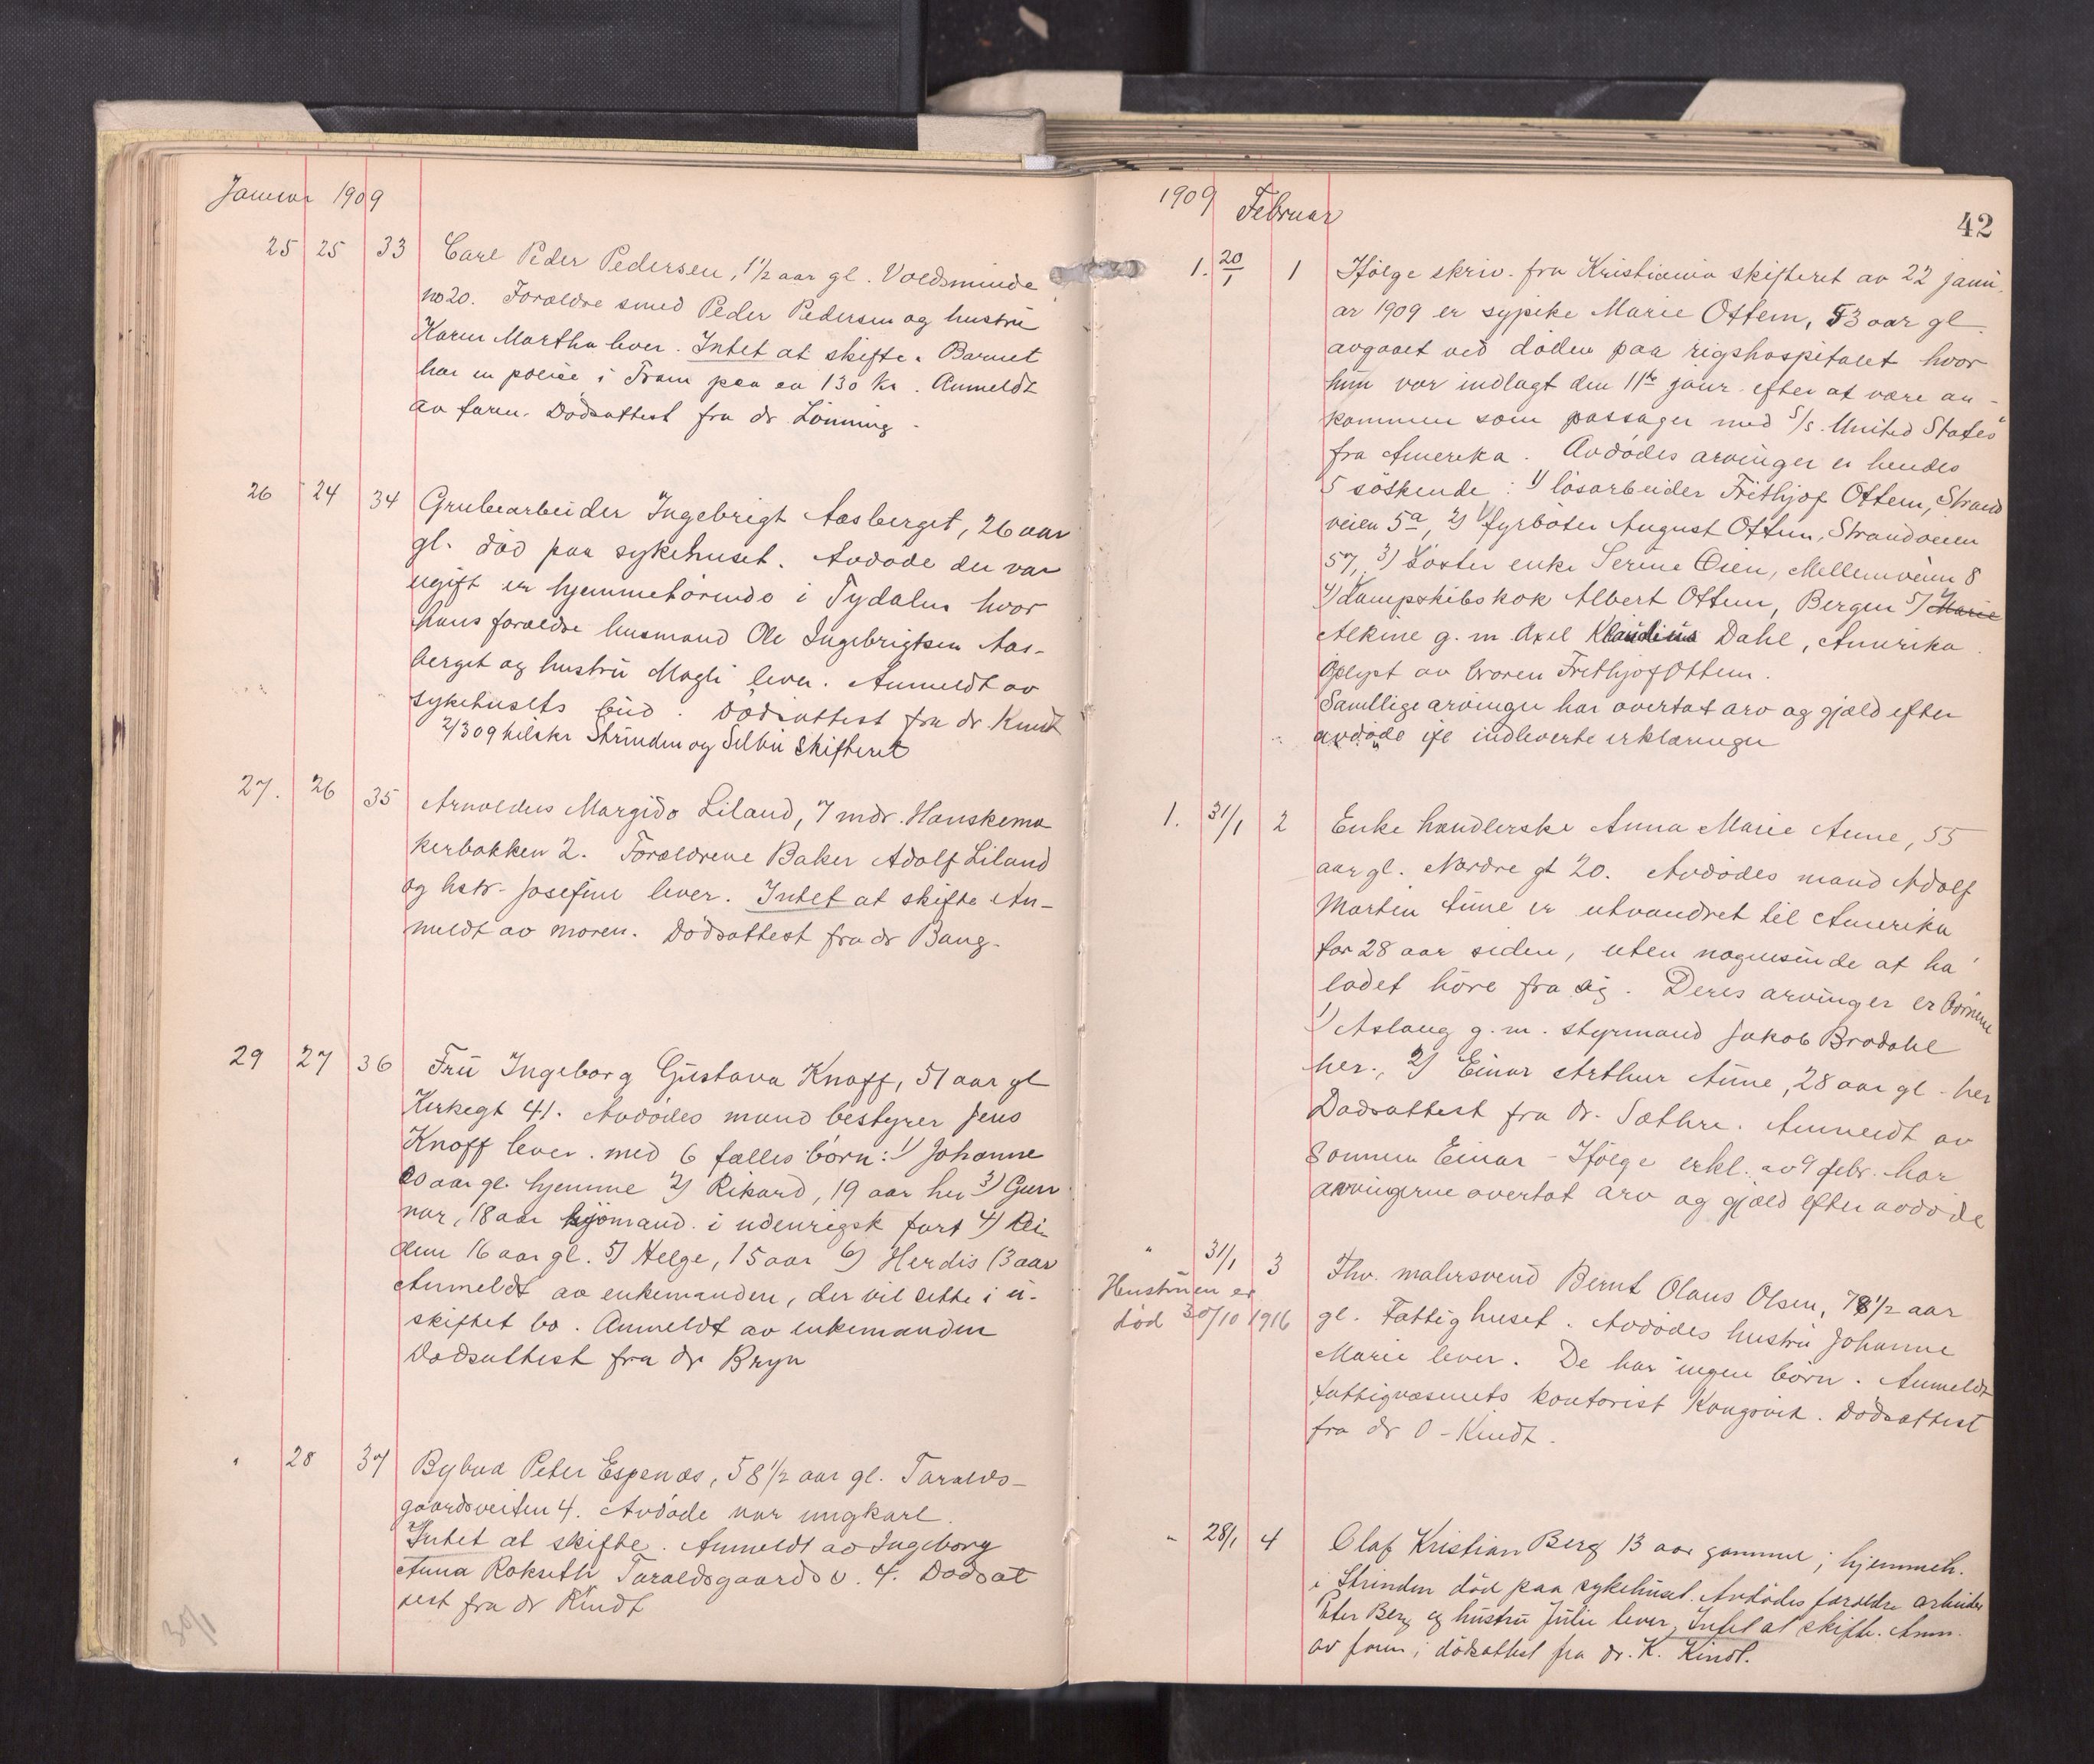 Januar 1909
25 25 33 Carl Peder Pedersen, 1½ aar gl. Voldsminde
no 20. Forældre smed Peder Pedersen og hustru
Karen Martha lever. Intet at skifte. Barnet
har en police i Fram paa en 130 kr. Anmeldt
av faren. Dødsattest fra dr. Lønning.
26 24 34 Grubearbeider Ingebrigt Aasberget, 26 aar
gl. død paa sykehuset. Avdøde der var
ugift er hjemmehørende i Tydalen hvor
hans forældre husmand Ole Ingebrigtsen Aas-
berget og hustru Magli lever. Anmeldt av
sykehusets bud. Dødsattest fra dr. Kindt
2/3 09 tilskr Strinden og Selbu skifteret
27. 26 35 Arnoldus Margido Liland, 7 mdr. Hanskema
kerbakken 2. Forældrene Baker Adolf Liland
og hstr. Josefine lever. Intet at skifte An-
meldt av moren. Dødsattest fra dr Bang.
29 27 36 Fru Ingeborg Gustava Knoff, 51 aar gl
Kirkegt 41. Avdødes mand bestyrer Jens
Knoff lever. med 6 fælles børn: 1) Johanne
20 aar gl. hjemme 2) Rikard, 19 aar her 3) Gun
nar, 18 aar sjømand i udenrigsk fart 4)
16 aar gl. 5) Helge, 15 aar 6) Herdis 13 aar
Anmeldt av enkemanden, der vil sitte i u-
skiftet bo. Anmeldt av enkemanden
Dødsattest fra dr Bryn
" 28 37 Bybud Peter Espenæs, 58½ aar gl. Taralds-
gaardsveiten 4. Avdøde var ungkarl.
Intet at skifte. Anmeldt av Ingeborg
Anna Rokseth Taraldsgaardsv. 4. Dødsat
test fra dr Kindt
30/1
1909 Februar
42
1. 20/1 1 Ifølge skriv. fra Kristiania skifteret av 22 janu
ar 1909 er sypike Marie Ottem, 53 aar gl.
avgaaet ved døden paa rigshospitalet hvor
hun var indlagt den 11te janr. efter at være an-
kommen som passager med S/S. United States"
fra Amerika. Avdødes arvinger er hendes
5 søskende: 1) løsarbeider Frithjof Ottem, Strand
veien 5a, 2) fyrbøter August Ottem, Strandveien
57, 3) Søster enke Serine Øien, Mellemveien 8
4) Dampskibskok Albert Ottem, Bergen 5) Marie
Alkine g. m. Axel Klaudius Dahl, Amerika.
Oplyst av broren Frithjof Ottem.
Samtlige arvinger har overtat arv og gjæld efter
avdøde ifl indleverte erklæringer
1. 31/1 2 Enke handlerske Anna Marie Aune, 55
aar gl. Nordre gt 20. Avdødes mand Adolf
Martin Aune er utvandret til Amerika
for 28 aar siden, uten nogensinde at ha
ladet høre fra sig. Deres arvinger er børnene
1) Aslaug g. m. styrmand Jakob Brodahl
her., 2) Einar Arthur Aune, 28 aar gl - her
Dødsattest fra dr. Sæthre. Anmeldt av
Sønnen Einar - Ifølge erkl. av 9 febr. har
arvingerne overtat arv og gjæld efter avdøde
" 31/1 3 Fhv. malersvend Bernt Olaus Olsen, 78½ aar
Hustruen er
død 30/10 1916
gl. Fattighuset. Avdødes hustru Johanne
Marie lever. De har ingen børn. Anmeldt
fattigvæsenets kontorist Kongsvik. Dødsattest
fra dr O-Kindt.
" 28/1 4 Olaf Kristian Berg 13 aar gammel; hjemmeh.
i Strinden død paa sykehuset. Avdødes forældre arbeider
Peter Berg og hustru Julie lever, Intet at skifte. Anm.
av faren; dødsattest fra dr. K. Kindt.